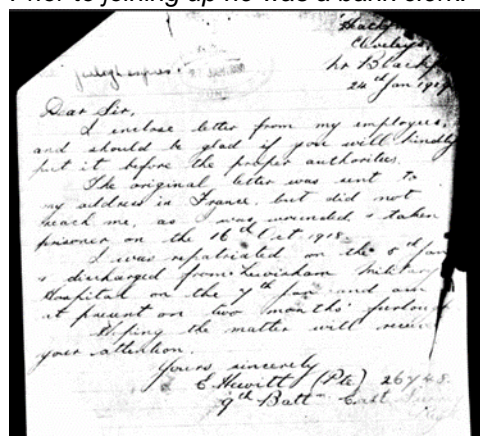 Prior to joining up he was a bank clerk.
Cleveleys
Nr Blackp
24th Jan 1919
Dear Sir,
I enclose letter from my employers,
and should be glad if you will kindly
put it before the proper authorities.
The original letter was sent to
my address in France, but did not
reach me, as I was wounded & taken
prisoner on the 16th Oct 1918.
I was repatriated on the 5th Jan
& discharged from Lewisham Military
Hospital on the 7th Jan and am
at present on two months' furlough
Hoping the matter will receive
your attention.
Yours sincerely
E Hewitt (Pte) 26748.
9th Battn East Surrey